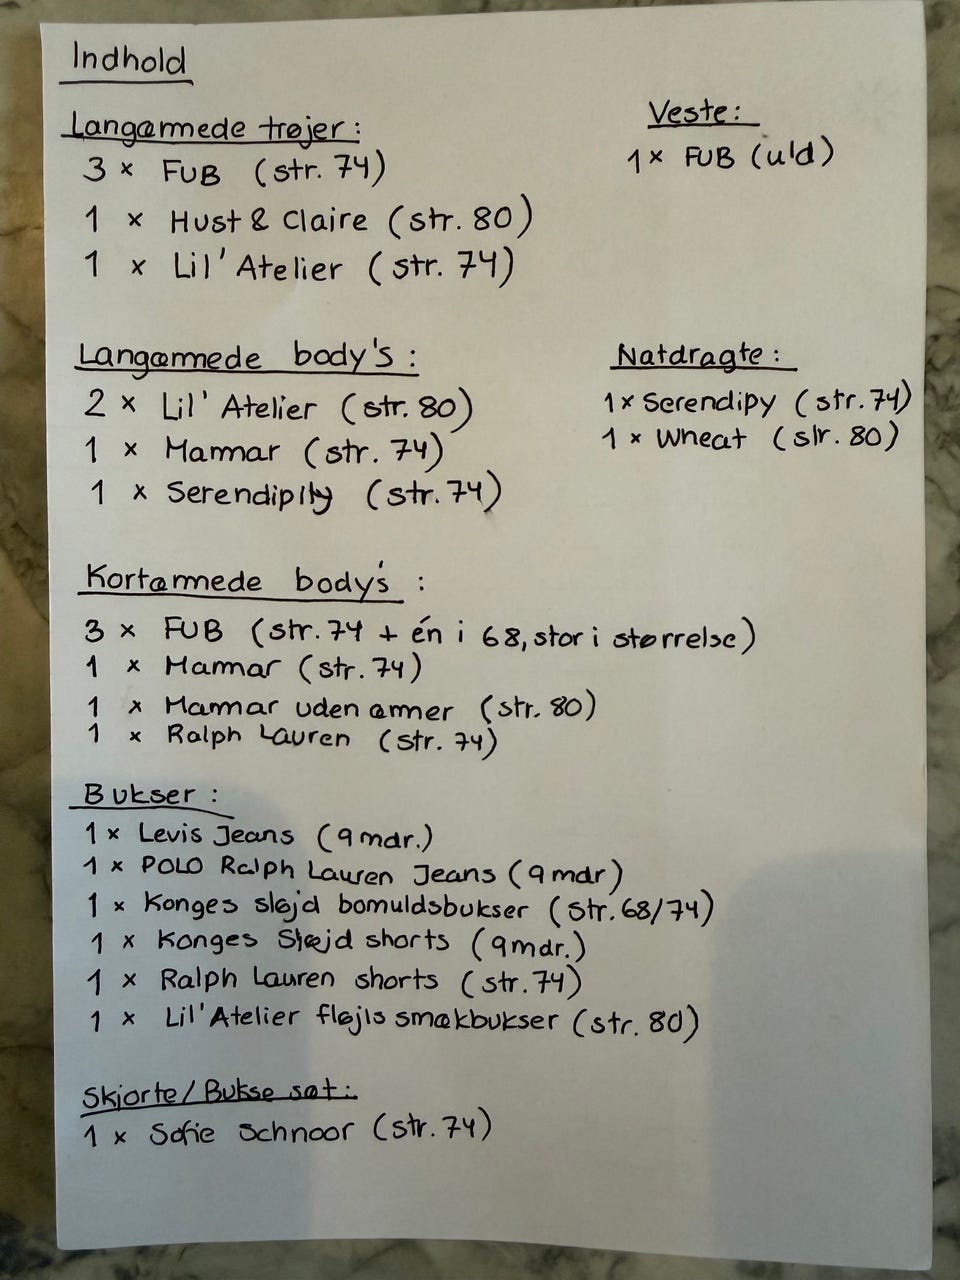 Indhold
Langærmede trøjer:
3 x FUB (str. 74)
1 x Hust & Claire (str. 80)
1 x Lil' Atelier (str. 74)
Veste:
1 x FUB (uld)
Langærmede body's:
2 x Lil' Atelier (str. 80)
1 x Marmar (str. 74)
1 x Serendipity (str. 74)
Natdragte:
1 x Serendipy (str. 74)
1 x Wheat (str. 80)
Kortærmede body's:
3 x FUB (str. 74 + én i 68, stor i størrelse)
1 x Marmar (str. 74)
1 x Marmar uden ærmer (str. 80)
1 x Ralph Lauren (str. 74)
Bukser:
1 x Levis Jeans (9 mdr.)
1 x POLO Ralph Lauren Jeans (9 mdr)
1 x Konges sløjd bomuldsbukser (str. 68/74)
1 x Konges Sløjd shorts (9 mdr.)
1 x Ralph Lauren shorts (str. 74)
1 x Lil' Atelier fløjls smækbukser (str. 80)
Skjorte/Bukse sæt:
1 x Sofie Schnoor (str. 74)